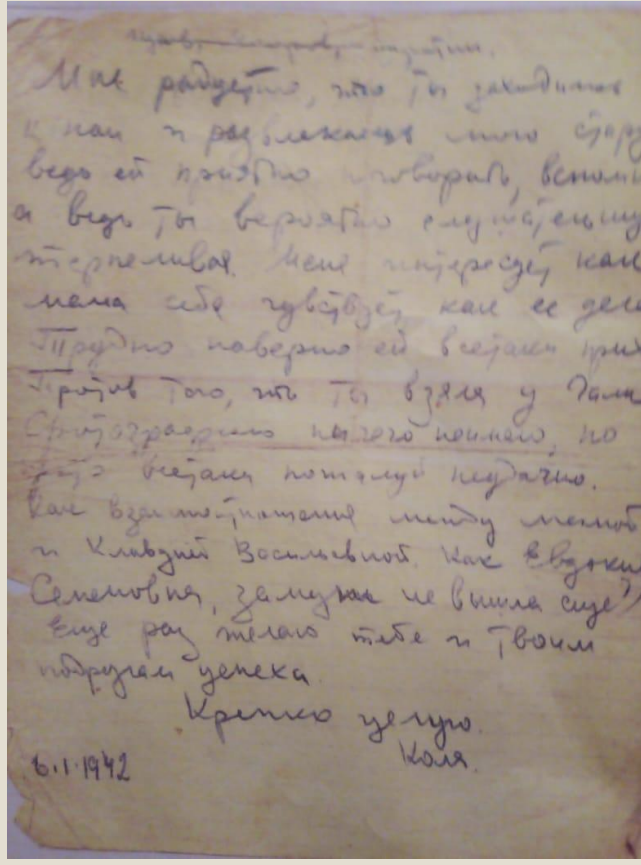 Мне радостно, что ты заходишь
к нам и развлекаешь мою
ведь ей приятно поговорить,
а ведь ты вероятно
терпеливая. Меня интересует как
мама себя чувствует как ее
Трудно наверно ей всетаки
Против того, что ты взяла у
фотографию ничего неимею, но
это всетаки пожалуй неудачно.
Как взаимоотношения между мамой
и Клавдией Васильевной. Как
Семеновна, замуж не вышла еще?
Еще раз желаю тебе и твоим
подругам успеха.
Крепко целую.
Коля.
6.1.1942